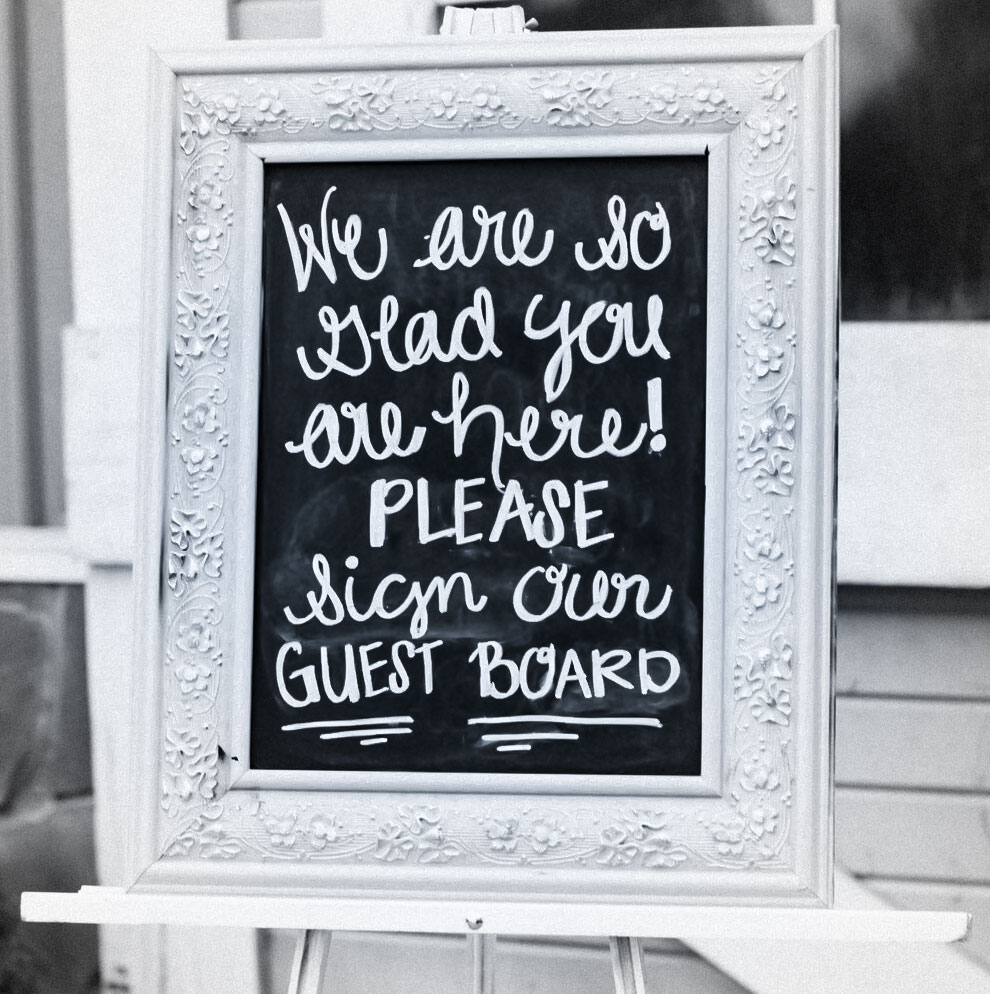 We are so
glad you
are here!
PLEASE
sign our
GUEST BOARD